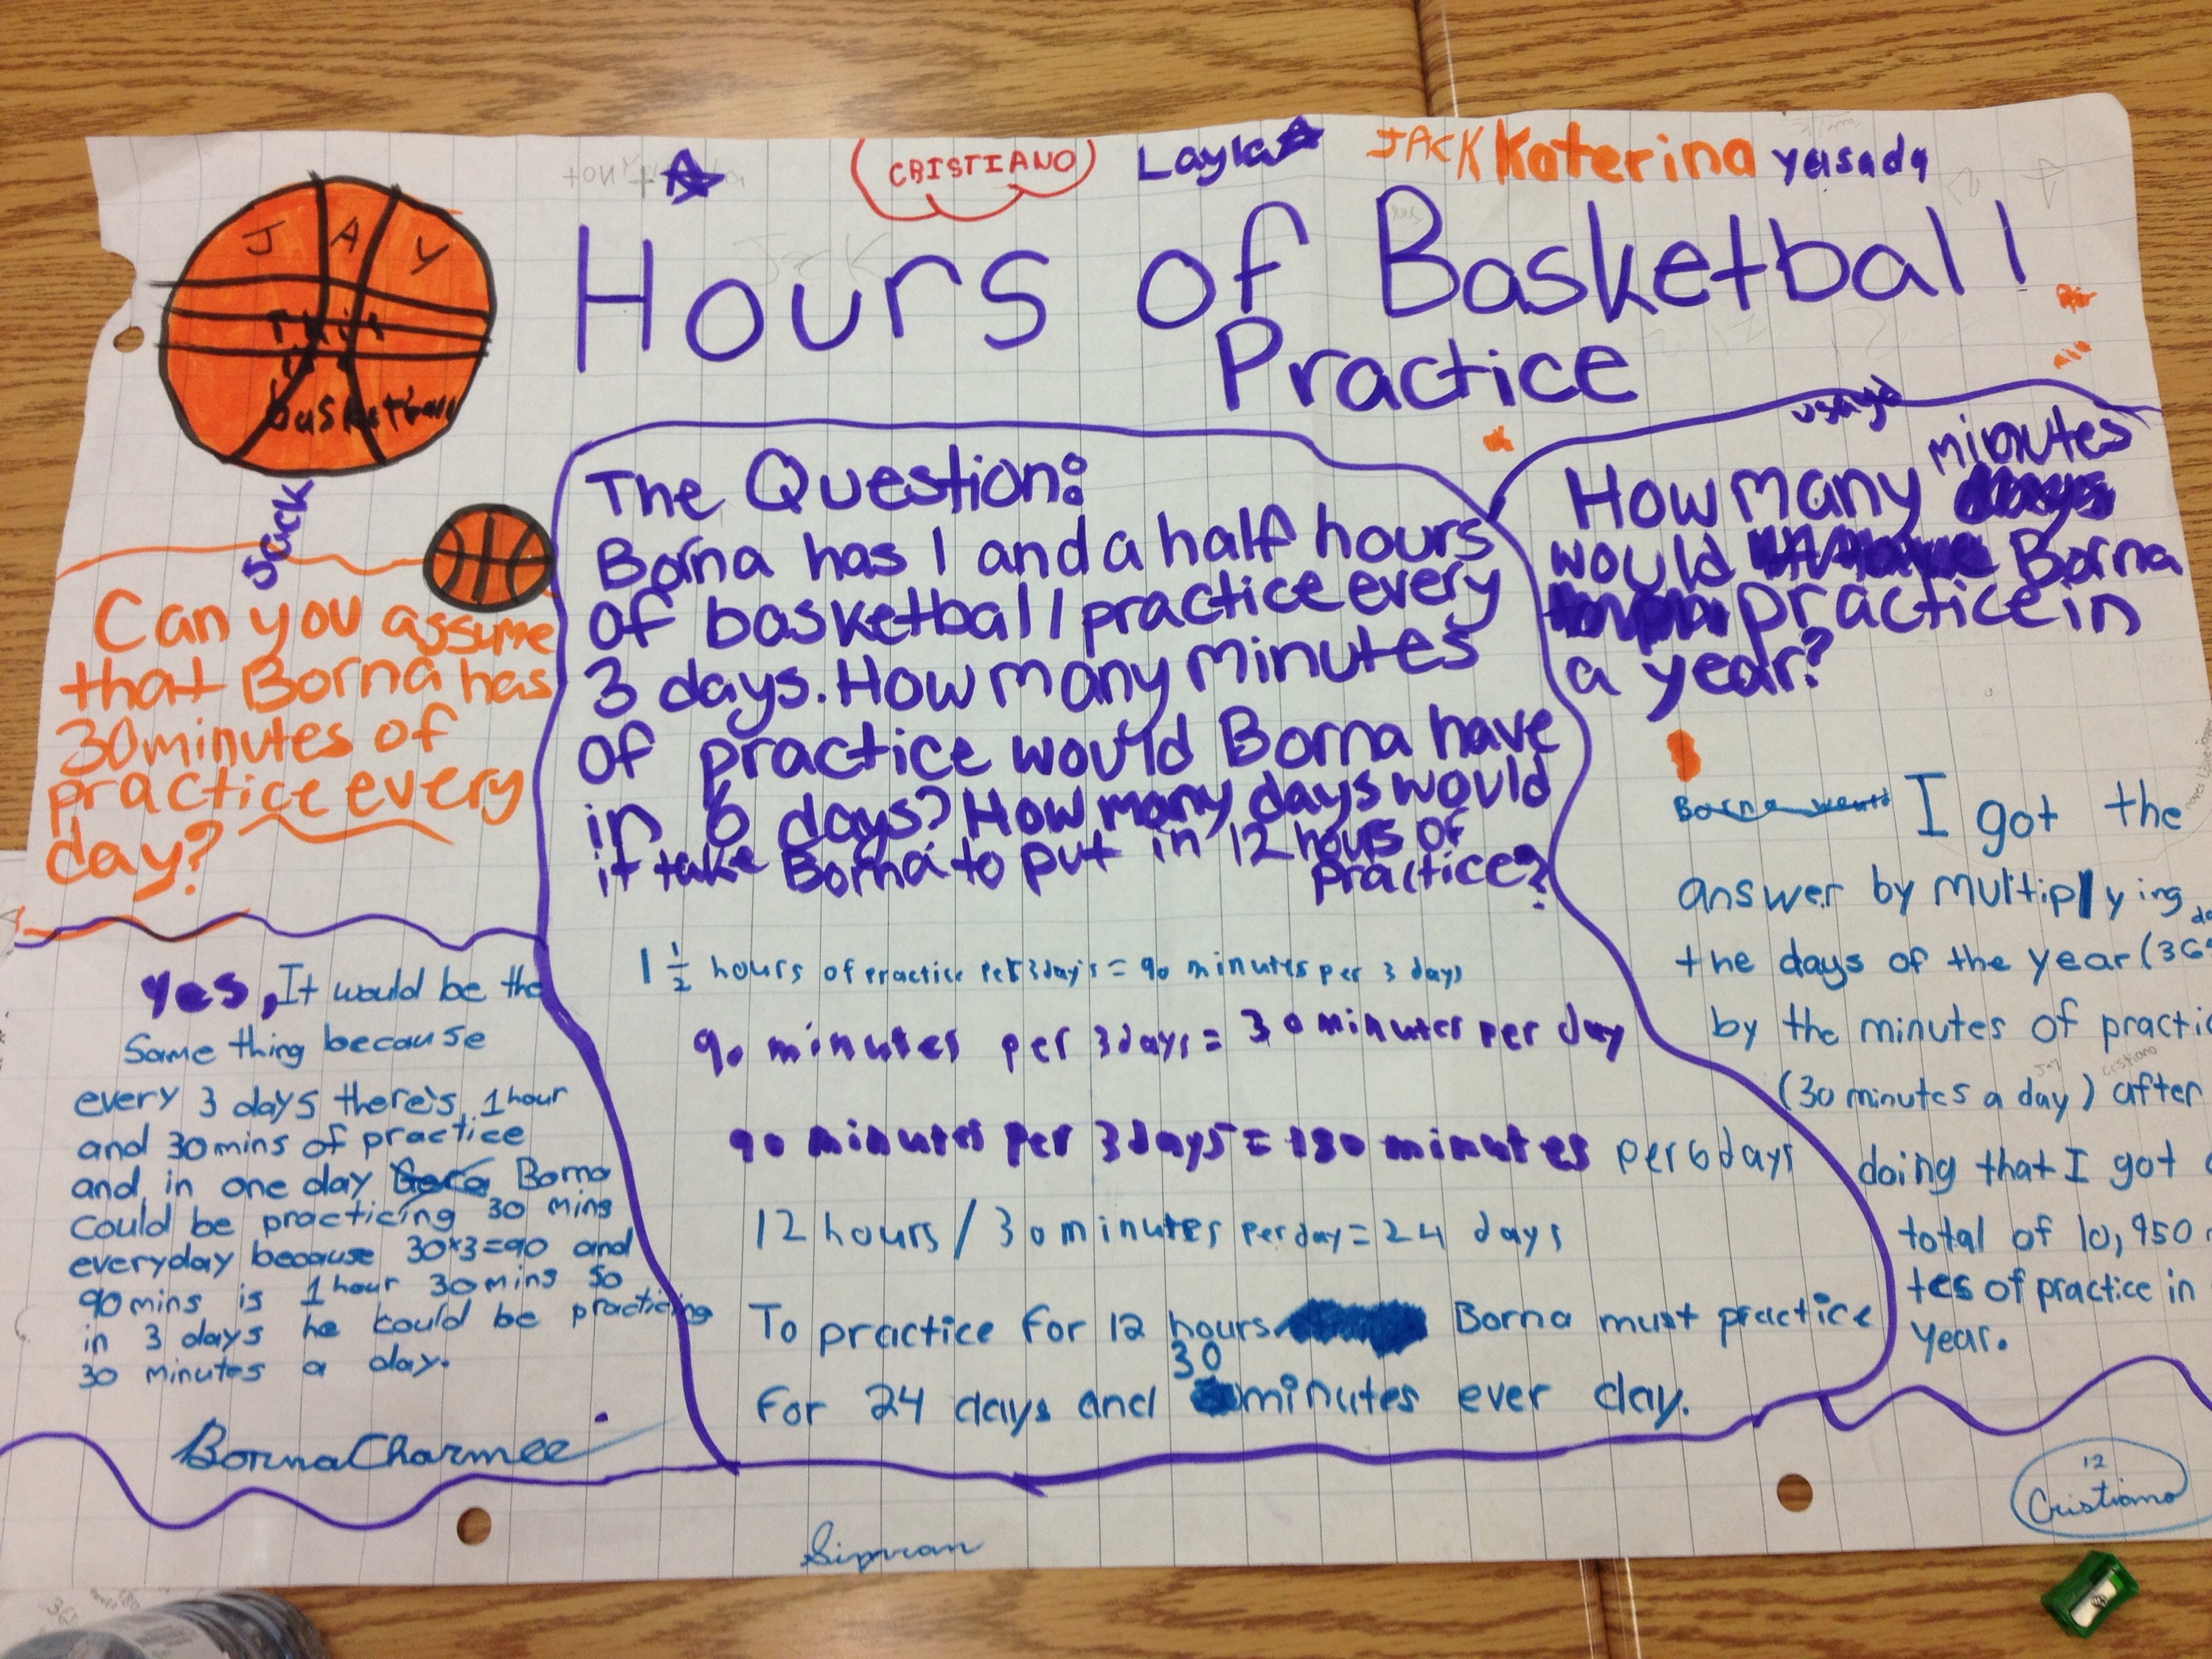 CRISTIANO Layla JACK Katerina yusada
J A Y
this
is
basketball
Hours of Basketball
Practice
Jack
Can you assume
that Borna has
30 minutes of
practice every
day?
Yes, It would be the
Same thing because
every 3 days there's 1 hour
and 30 mins of practice
and in one day Borna
could be practicing 30 mins
everyday because 30x3=90 and
90 mins is 1 hour 30 mins so
in 3 days he could be practicing
30 minutes a day.
Borna Charmee
The Question:
Borna has 1 and a half hours
of basketball practice every
3 days. How many minutes
of practice would Borna have
in 6 days? How many days would
it take Borna to put in 12 hours of
Practice?
1 1/2 hours of practice per 3 days = 90 minutes per 3 days
90 minutes per 3 days = 30 minutes per day
90 minutes per 3 days = 180 minutes per 6 days
12 hours / 30 minutes per day = 24 days
To practice for 12 hours Borna must practice
for 24 days and 30 minutes ever day.
Simran
usaya
How many minutes
would Borna
practice in
a year?
Borna would I got the
answer by multiplying
the days of the year (365
by the minutes of practic
(30 minutes a day) after
doing that I got
total of 10,950
tes of practice in
year.
Jay Cristiano
12
Cristiano